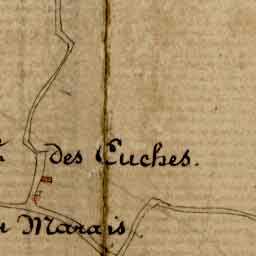 des Euches.
Marais